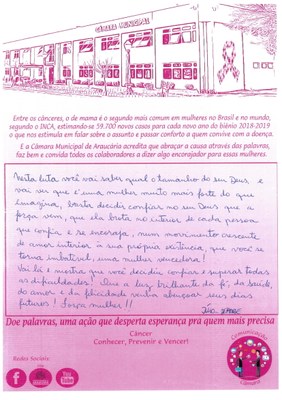 CÂMARA MUNICIPAL
Entre os cânceres, o de mama é o segundo mais comum em mulheres no Brasil e no mundo,
segundo o INCA, estimando-se 59.700 novos casos para cada novo ano do biênio 2018-2019
o que nos estimula em falar sobre o assunto e passar conforto a quem convive com a doença.
E a Câmara Municipal de Araucária acredita que abraçar a causa através das palavras,
faz bem e convida todos os colaboradores a dizer algo encorajador para essas mulheres.
Nesta luta você vai saber qual o tamanho do seu Deus e
vai ver que é uma mulher muito mais forte do que
imagina, basta decidir confiar no seu Deus que a
força vem, que ela brota no interior de cada pessoa
que confia e se encoraja, num movimento crescente
de amor interior à sua própria existência, que você se
torna imbatível, uma mulher vencedora!
Vai lá e mostra que você decidiu confiar e superar todas
as dificuldades! Que a luz brilhante da fé, da saúde,
do amor e da felicidade venha abraçar seus dias
futuros! Força mulher!!
Doe palavras, uma ação que desperta esperança pra quem mais precisa
Câncer
Conhecer, Prevenir e Vencer!
Redes Sociais:
f
You
Tube
Comunicação
câmara